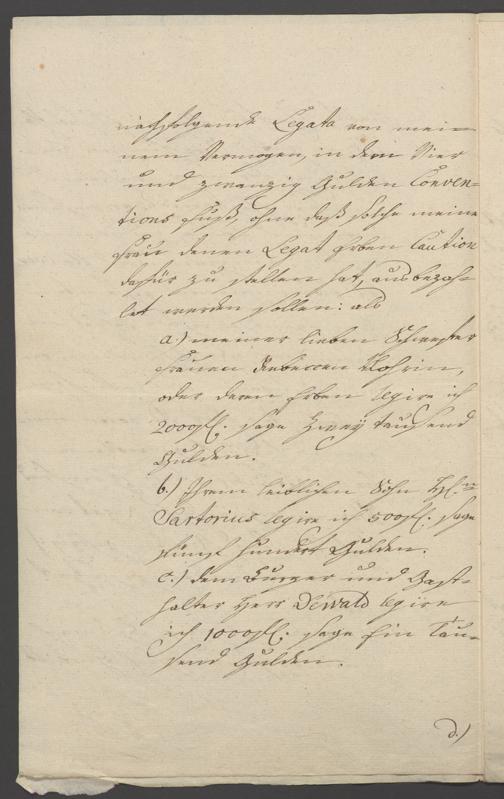 nachfolgende Legata von mei=
nem Vermögen, in dem Vier
und zwanzig Gulden Conven=
tions Fuß, ohne daß solche meine
Frau denen Legat Erben Caution
dafür zu stellen hat, ausbezah=
let werden sollen: als
a.) meiner lieben Schwester
Frauen Rebeccen
oder deren Erben legire ich
2000 fl. sage Zwey tausend
Gulden.
b.) Ihrem leiblichen Sohn
Sartorius legire ich 500 fl. sage
fünf hundert Gulden.
c.) dem Burger und Gast=
halter Herr Dewald legire
ich 1000 fl. sage Ein Tau=
send Gulden.
d.)